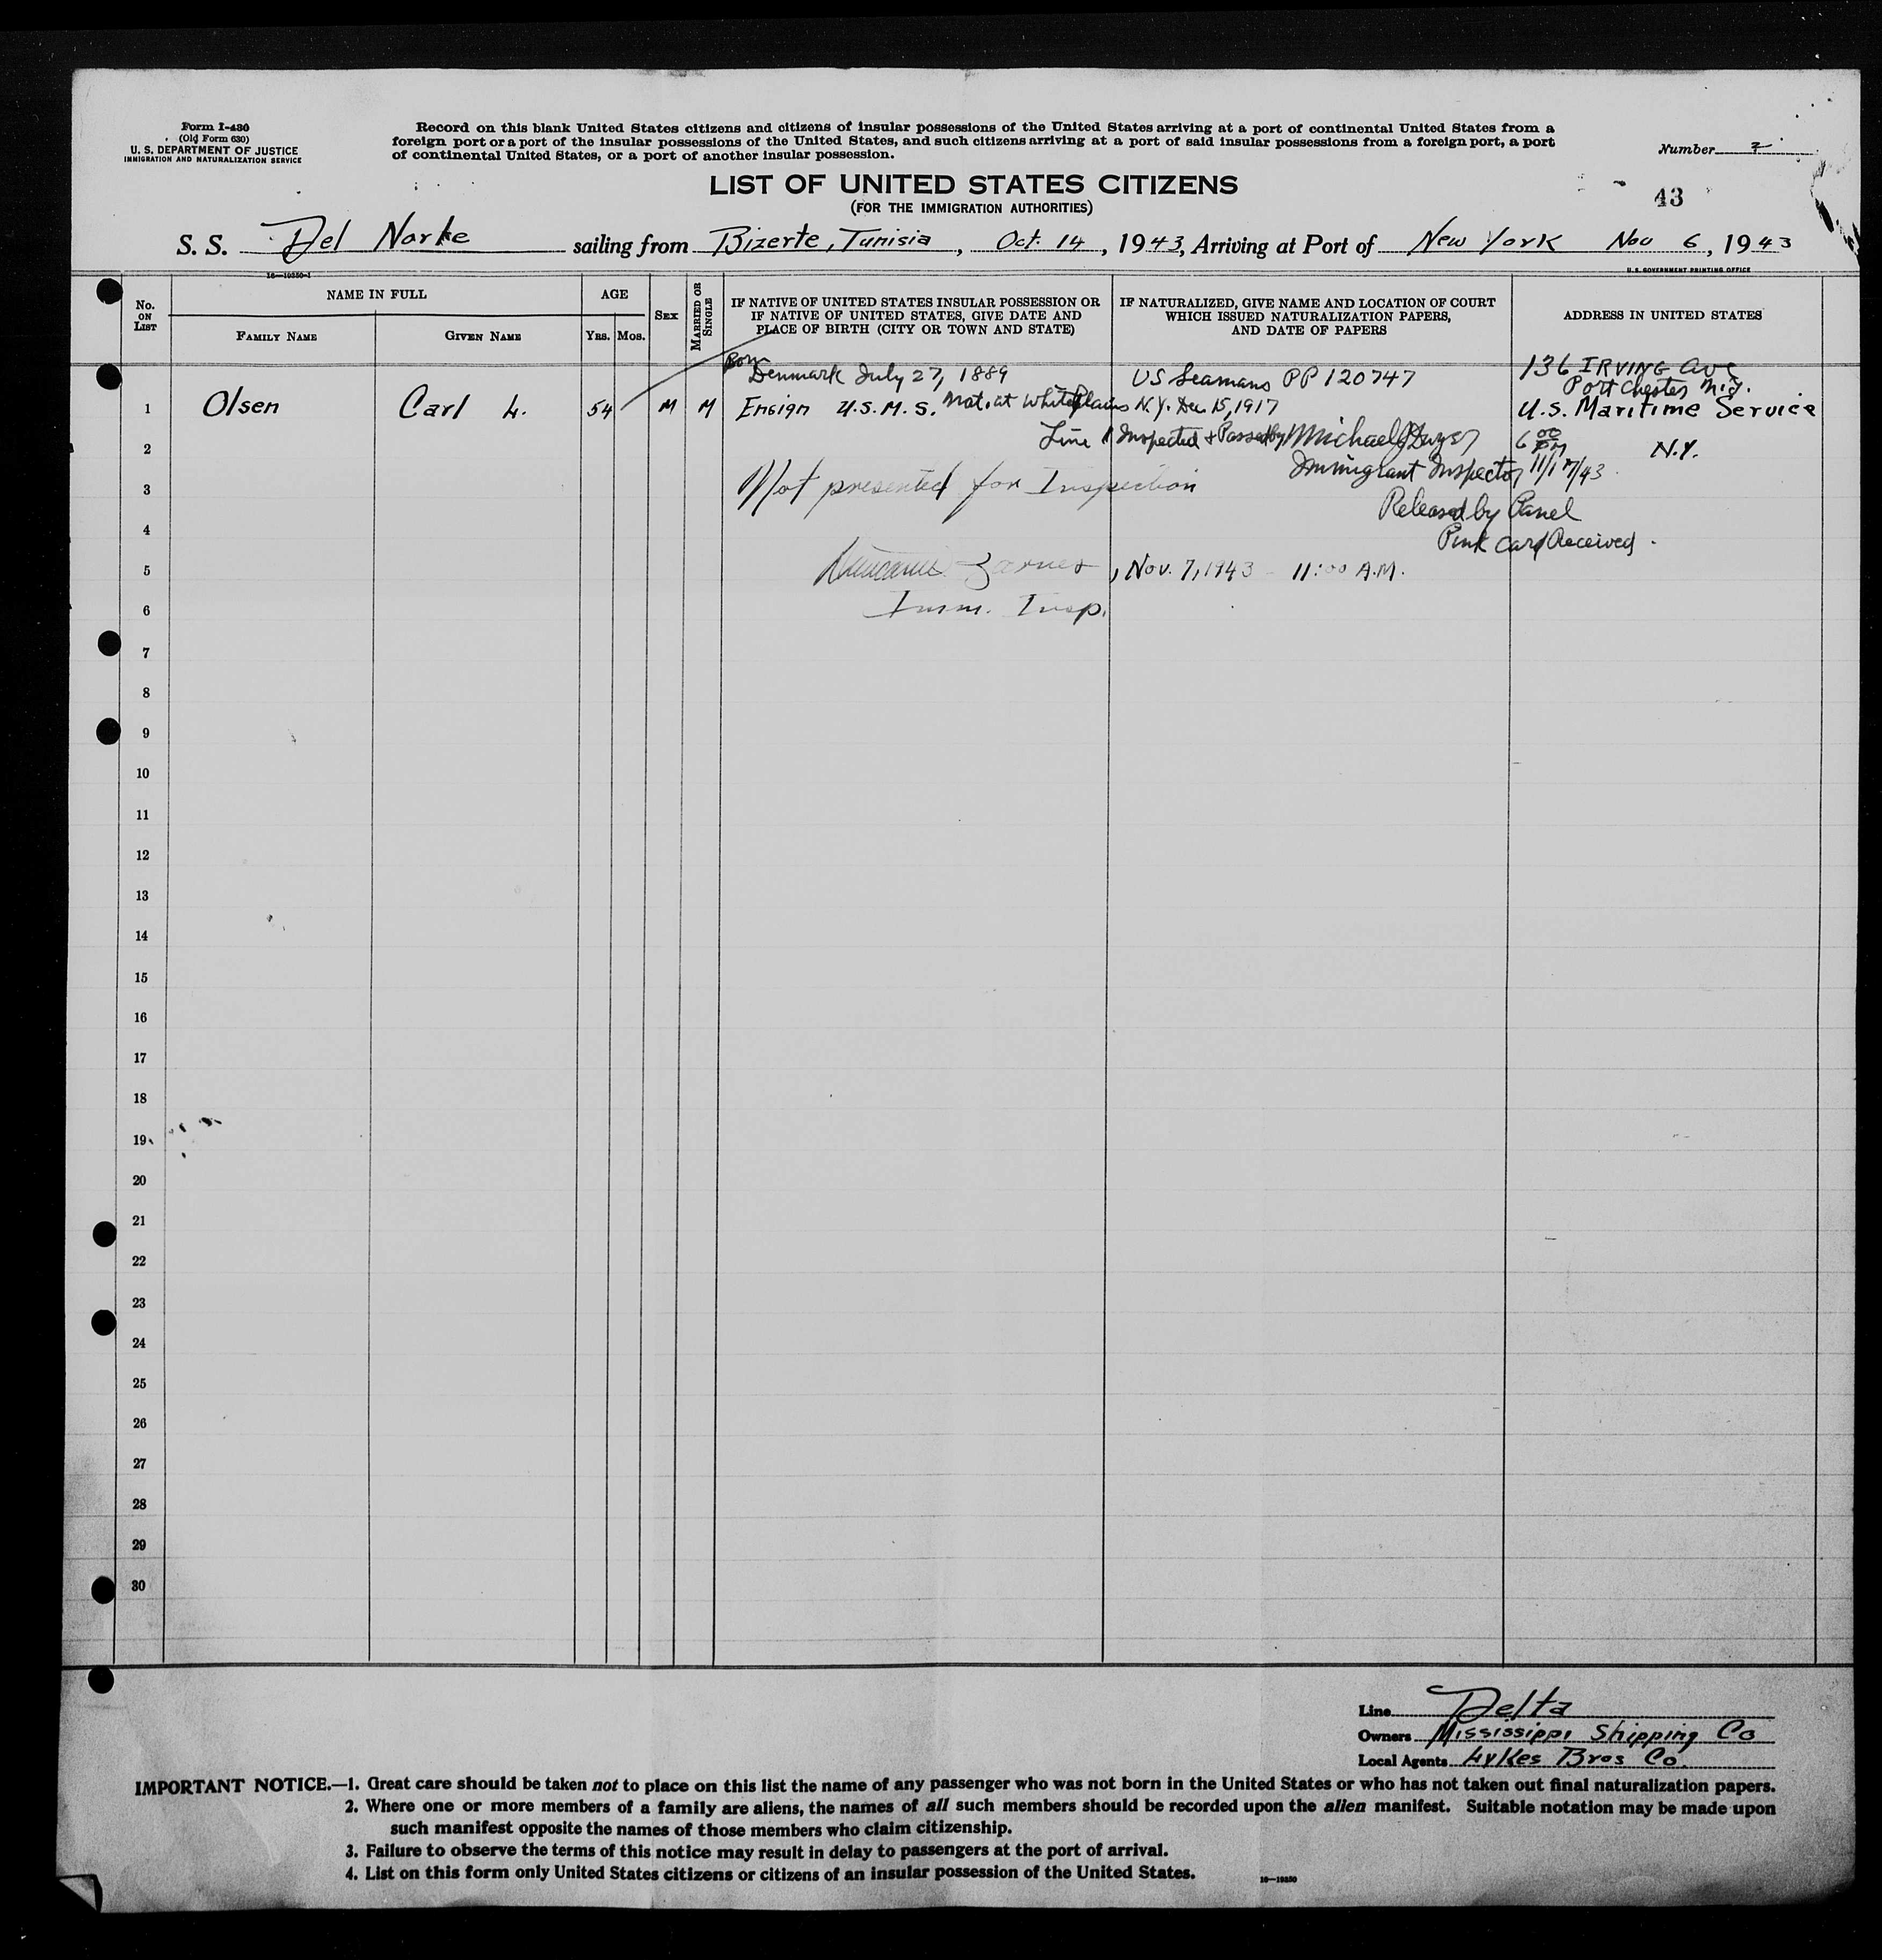 Form I-430
(Old Form 630)
U. S. DEPARTMENT OF JUSTICE
IMMIGRATION AND NATURALIZATION SERVICE
Record on this blank United States citizens and citizens of insular possessions of the United States arriving at a port of continental United States from a
foreign port or a port of the insular possessions of the United States, and such citizens arriving at a port of said insular possessions from a foreign port, a port
of continental United States, or a port of another insular possession.
Number 2
LIST OF UNITED STATES CITIZENS
(FOR THE IMMIGRATION AUTHORITIES)
43
S. S. Del Norte sailing from Bizerte, Tunisia, Oct. 14, 1943, Arriving at Port of New York Nov 6, 1943
16—19350-1
U. S. GOVERNMENT PRINTING OFFICE
No. ON LIST
NAME IN FULL
FAMILY NAME
GIVEN NAME
AGE
YRS.
MOS.
SEX
MARRIED OR SINGLE
IF NATIVE OF UNITED STATES INSULAR POSSESSION OR
IF NATIVE OF UNITED STATES, GIVE DATE AND
PLACE OF BIRTH (CITY OR TOWN AND STATE)
IF NATURALIZED, GIVE NAME AND LOCATION OF COURT
WHICH ISSUED NATURALIZATION PAPERS,
AND DATE OF PAPERS
ADDRESS IN UNITED STATES
Born
Denmark July 27, 1889 US Seamans PP 120747 136 IRVING Ave
Port Chester N.Y.
1 Olsen Carl L. 54 M M Ensign U.S.M.S. Nat. at White Plains N.Y. Dec 15, 1917 U.S. Maritime Service
2 Line 1 Inspected & Passed by Michael J 6 00 PM N.Y.
Immigrant Inspector 11/17/43
3 Not presented for Inspection
Released by Panel
4
Pink Card Received.
5 , Nov. 7, 1943 - 11:00 A.M.
6 Imm. Insp.
7
8
9
10
11
12
13
14
15
16
17
18
19
20
21
22
23
24
25
26
27
28
29
30
Line Delta
Owners Mississippi Shipping Co
Local Agents Lykes Bros Co.
IMPORTANT NOTICE.—1. Great care should be taken not to place on this list the name of any passenger who was not born in the United States or who has not taken out final naturalization papers.
2. Where one or more members of a family are aliens, the names of all such members should be recorded upon the alien manifest. Suitable notation may be made upon
such manifest opposite the names of those members who claim citizenship.
3. Failure to observe the terms of this notice may result in delay to passengers at the port of arrival.
4. List on this form only United States citizens or citizens of an insular possession of the United States.
16—19350